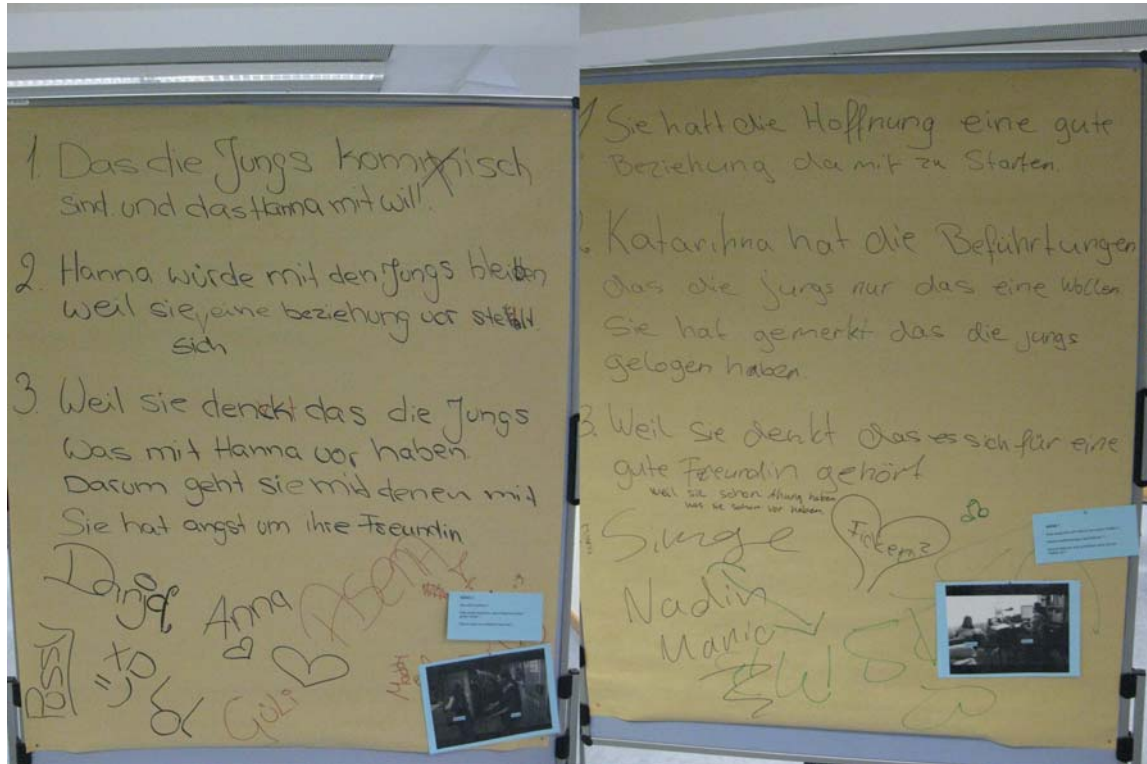 1. Das die Jungs komisch
sind. und das Hanna mit will.
2. Hanna würde mit den Jungs bleiben
weil sie eine beziehung vor stellt.
sich
3. Weil sie denkt das die Jungs
Was mit Hanna vor haben.
Darum geht sie mit denen mit
Sie hat angst um ihre Freundin
Danja
Anna
Asem
Possy
XD
=)
Güli
Maddy
1 Sie hatt die Hoffnung eine gute
Beziehung da mit zu Starten.
2. Katarihna hat die Beführtungen
das die jungs nur das eine Wollen.
Sie hat gemerkt das die jungs
gelogen haben.
3. Weil sie denkt das es sich für eine
gute Freundin gehört
weil sie schon Ahung haben
was sie schon vor haben.
Simge
Ficken?
Nadin
Maria